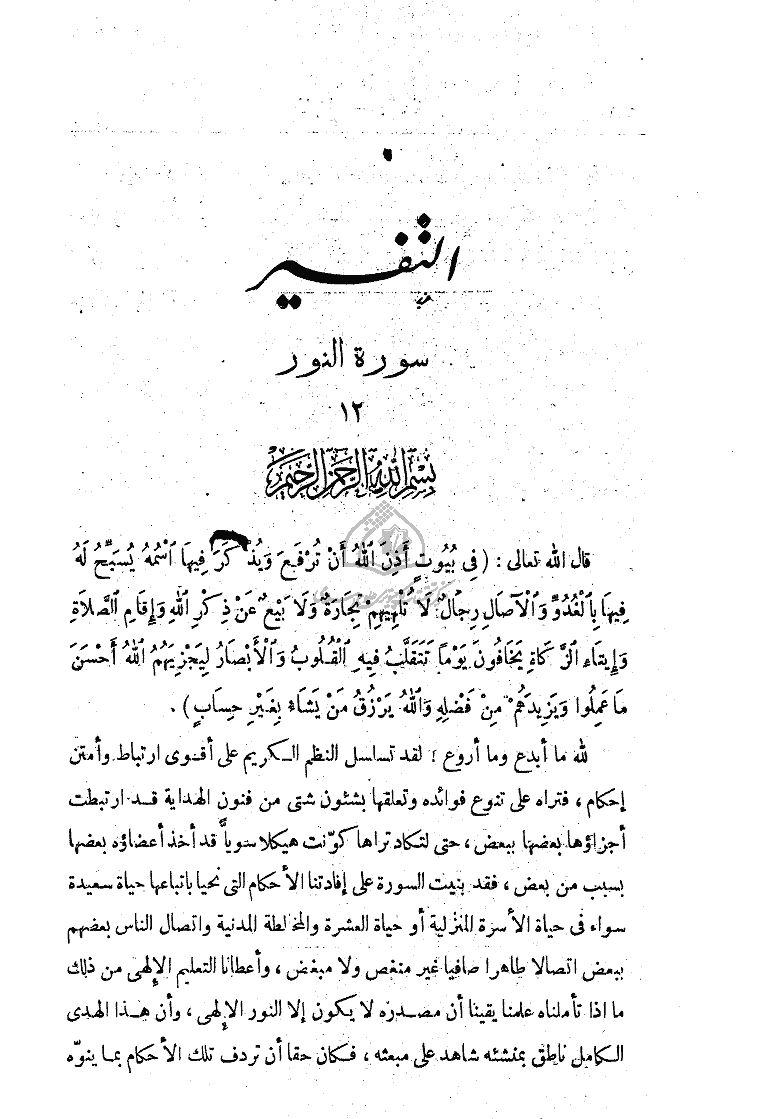 التفسير
سورة النور
١٢
بسم الله الرحمن الرحيم
قال الله تعالى : ( فِى بُيُوتٍ أَذِنَ ٱللهُ أَنْ تُرْفَعَ وَيُذْكَرَ فِيهَا ٱسْمُهُ يُسَبِّحُ لَهُ
فِيهَا بِٱلْغُدُوِّ وَٱلْآصَالِ رِجَالٌ لَا تُلْهِيهِمْ تِجَارَةٌ وَلَا بَيْعٌ عَنْ ذِكْرِ ٱللهِ وَإِقَامِ ٱلصَّلَاةِ
وَإِيتَاءِ ٱلزَّكَاةِ يَخَافُونَ يَوْمًا تَتَقَلَّبُ فِيهِ ٱلْقُلُوبُ وَٱلْأَبْصَارُ لِيَجْزِيَهُمُ ٱللهُ أَحْسَنَ
مَا عَمِلُوا وَيَزِيدَهُمْ مِنْ فَضْلِهِ وَٱللهُ يَرْزُقُ مَنْ يَشَاءُ بِغَيْرِ حِسَابٍ ) .
لله ما أبدع وما أروع ! لقد تسلسل النظم الكريم على أقوى ارتباط وأمتن
إحكام ، فتراه على تنوع فوائده وتعلقها بشئون شتى من فنون الهداية قد ارتبطت
أجزاؤها بعضها ببعض ، حتى لتكاد تراها كوّنت هيكلا سوياً قد أخذ أعضاؤه بعضها
بسبب من بعض ، فقد بنيت السورة على إفادتنا الأحكام التى نحيا باتباعها حياة سعيدة
سواء فى حياة الأسرة المنزلية أو حياة العشرة والمخالطة المدنية واتصال الناس بعضهم
ببعض اتصالا طاهرا صافيا غير منغص ولا مبغض ، وأعطانا التعليم الإلهى من ذلك
ما اذا تأملناه علمنا يقينا أن مصدره لا يكون إلا النور الإلهى ، وأن هذا الهدى
الكامل ناطق بمنشئه شاهد على مبعثه ، فكان حقا أن تردف تلك الأحكام بما ينوّه